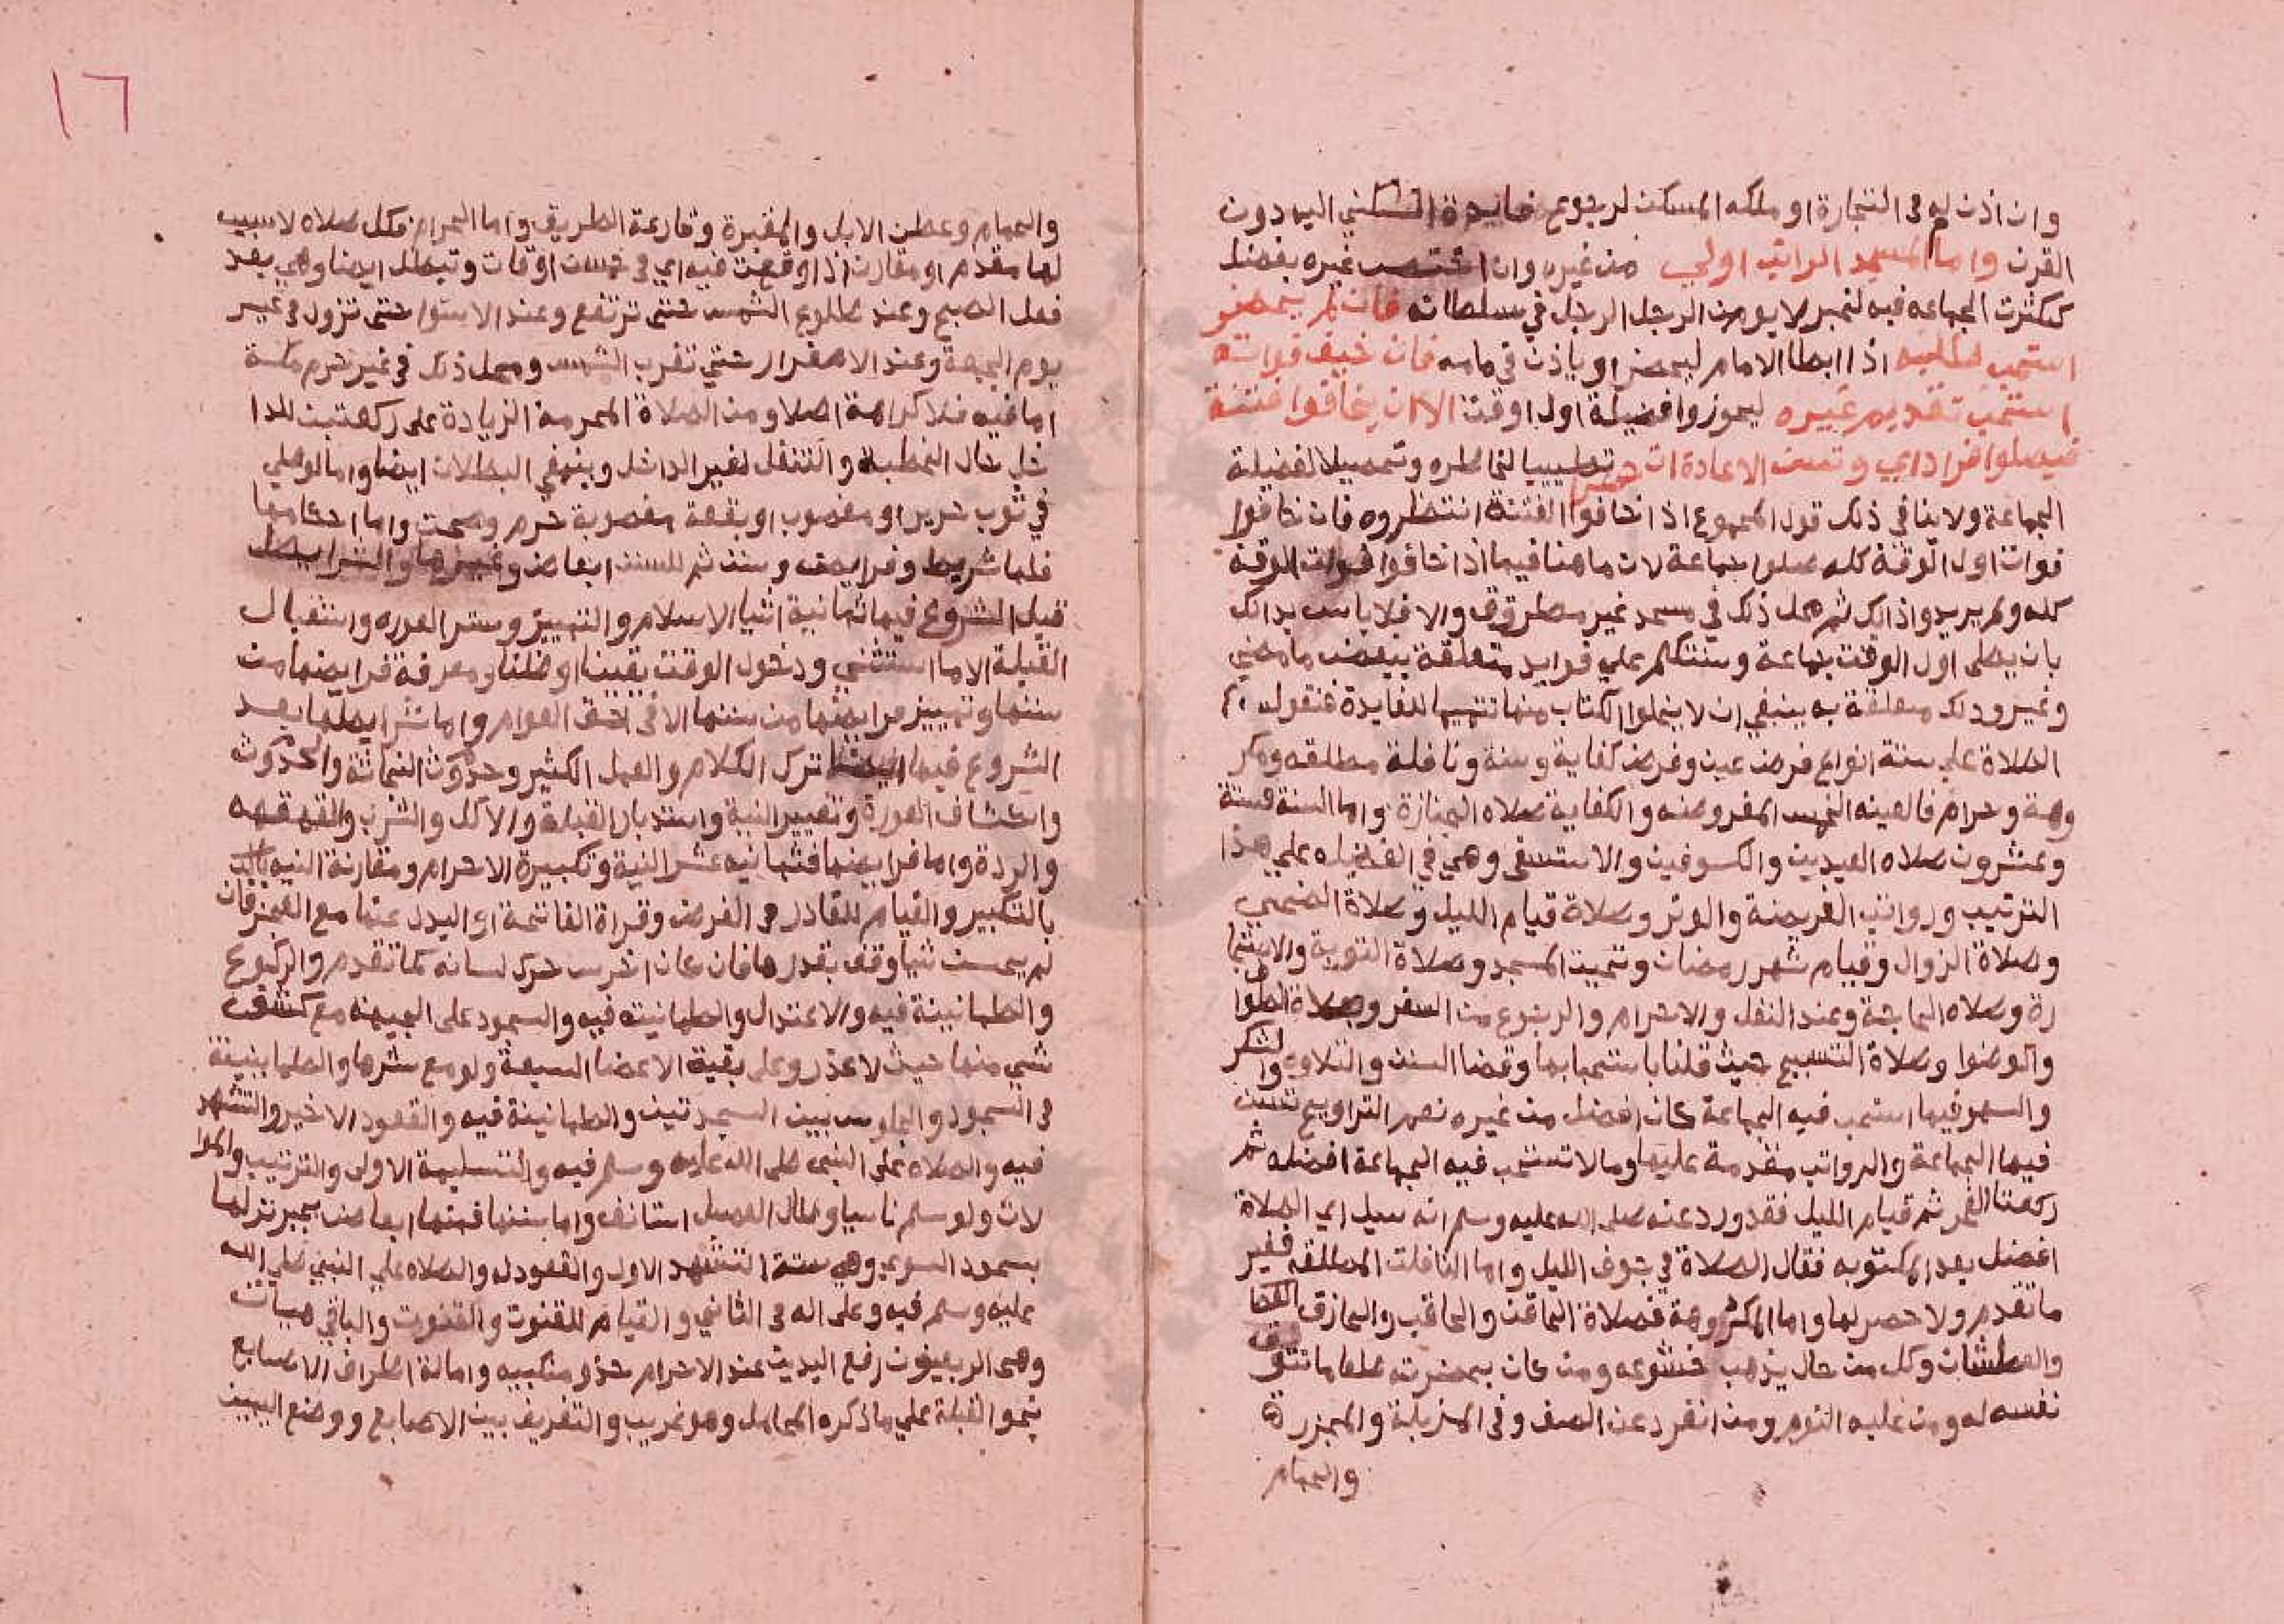 وان اذن له في التجارة او ملكه المسكن لرجوع فايدة السكني اليه دون
القرن واما المسجد الراتب اولي من غيره وان اختص غيره بفضل
ككثرت الجماعه فيه لخبر لا يومن الرجل الرجل في سلطانه فان لم يحضر
استحب طلبه اذا ابطا الامام ليحضر او ياذن في مامه فان خيف فواته
استحب تقديم غيره ليحوزوا فضيلة اول اوقت الا ان يخافوا فتنة
فيصلوا فرادي وتسن الاعادة ان حضر تطييبا لخاطره وتحصيلا لفضيلة
الجماعة ولا ينافي ذلك قول المجموع اذا خافوا الفتنة انتظروه فان خافوا
فوات اول الوقت كله صلوا جماعة لان ما هنا فيما اذا خافوا فوات الوقت
كله ولم يريدوا ذالك ثم محل ذلك في مسجد غير مطروق والا فلا باس بذالك
بان يصلى اول الوقت جماعة وسنتكلم علي فوايد متعلقة ببعض ما مضي
وغير ودلك متعلقة به ينبغي ان لا يخلوا الكتاب منها تتميما للفايدة فنقول
الصلاة علي ستة انواع فرض عين وفرض كفاية وسنة ونافلة مطلقه ومكر
وهة وحرام فالعينه الخمس المفروضه والكفاية صلاه الجنازة واما السنة فستة
وعشرون صلاه العيدين والكسوفين والاستسقى وهي في الفضيله علي هذا
الترتيب ورواتب الفريضة والوتر وصلاة قيام الليل وصلاة الضحي
وصلاة الزوال وقيام شهر رمضان وتحيت المسجد وصلاة التوبة والاستخا
رة وصلاه الحاجة وعند النفل والاحرام والرجوع من السفر وصلاة الطوا
والوضوا وصلاة التسبيح حيث قلنا باستحبابها وقضا السنن والتلاوه والشكر
والسهو فيها استحب فيه الجماعة كان افضل من غيره نعم التراويح تسن
فيها الجماعة والرواتب مقدمة عليها وما لا تستحب فيه الجماعة افضله ثم
ركعتا الفجر ثم قيام الليل فقد ورد عنه صلى الله عليه وسلم انه سيل اي الصلاة
افضل بعد المكتوبه فقال الصلاة في جوف الليل واما النافلت المطلقه فغير
ما تقدم ولا حصر لها واما المكروهة فصلاة الحاقن والحاقب والحازق
والعطشان وكل من حال يذهب خشوعه ومن كان بحضرته طعاما تتوق
نفسه له ومن غلبه النوم ومن انفرد عن الصف وفى المزبلة والمجزرة
والحمام
١٦
والحمام وعطن الابل والمقبرة وقارعة الطريق واما الحرام فكل صلاه لاسبب
لها مقدم او مقارن اذا اوقعت فيه اي فى خمست اوقات وتبطل ايضا وهي بعد
فعل الصبح وعند طلوع الشمس حتى ترتفع وعند الاستوا حتى تزول فى غير
يوم الجمعة وعند الاصفرار حتي تغرب الشمس ومحل ذلك فى غير حرم مكة
اما فيه فلا كراهة اصلا ومن الصلاة المحرمة الزيادة على ركعتين للدا
خل حال الخطبة والتنفل لغير الداخل وينبغي البطلان ايضا واما لو صلي
في ثوب حرير او مغصوب او بقعة مغصوبة حرم وصحت واما احكامها
فلها شريط وفرايض وسنن ثم للسنن ابعاض وغيرها والشرايط
قبل الشروع فيها ثمانية اشيا الاسلام والتمييز وستر العوره واستقبال
القبلة الا ما استثني ودخول الوقت يقينا او ظنا ومعرفة فرايضها من
سننها وتمييز فرايضها من سننها الا في حق العوام واما شرايطها بعد
الشروع فيها ايضا ترك الكلام والعمل الكثير وحدوث النجاسة والحدوث
وانكشاف العورة وتغيير النية واستدبار القبلة والاكل والشرب والقهقهه
والردة واما فرايضها فثمانيه عشر النية وتكبيرة الاحرام ومقارنة النيه
بالتكبير والقيام للقادر فى الفرض وقراة الفاتحة او البدل عنها مع العجز فان
لم يحسن شيا وقف بقدرها فان كان اخرس حرك لسانه كما تقدم والركوع
والطمانينة فيه والاعتدال والطمانينه فيه والسجود على الجبهه مع كشف
شي منها حيث لا عذر وعلى بقية الاعضا السبعة ولو مع سترها والطمانينة
فى السجود والجلوس بين السجدتين والطمانينة فيه والقعود الاخير والتشهد
فيه والصلاه على النبى صلى الله عليه وسلم فيه والتسليمة الاولى والترتيب والموا
لات ولو سلم ناسيا وطال الفصل استانف واما سننها فمنها ابعاض يجبر تركها
بسجود السهو وهي ستة التشهد الاول والقعود له والصلاه علي النبي صلي الله
عليه وسلم فيه وعلى اله فى الثاني والقيام للقنوت والقنوت والباقي هيات
وهى اربعون رفع اليدين عند الاحرام حذو منكبيه وامالة اطراف الاصابع
نحو القبلة علي ما ذكره المحاملي وهو غريب والتفريق بين الاصابع ووضع اليمين